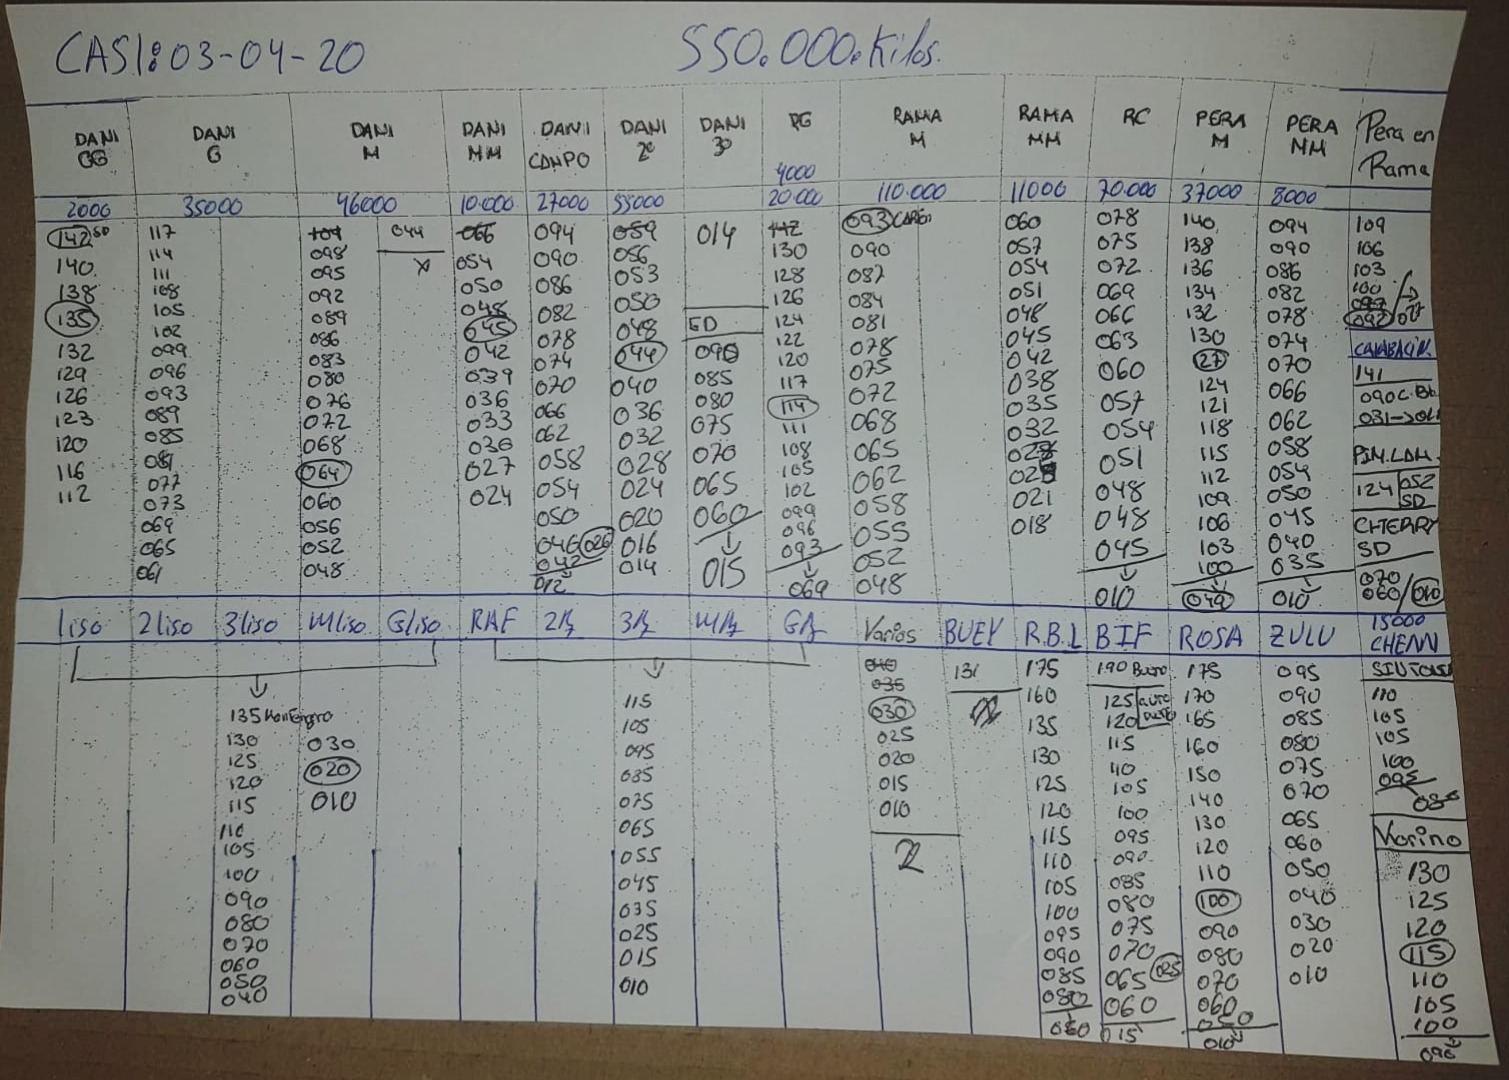 CASI: 03-04-20 550.000.Kilos.
DANI GG DANI G DANI M DANI MM DANI CAMPO DANI 2º DANI 3º RG RAMA M RAMA MM RC PERA M PERA MM Pera en Rama
4000
2000 35000 46000 10.000 27000 55000 20.000 110.000 11000 70.000 37000 8000
142 SD 117 101 044 066 094 059 014 142 093 060 078 140 094 109
140 114 098 X 054 090 056 130 090 057 075 138 090 106
138 111 095 050 086 053 128 087 054 072 136 086 103
135 108 092 048 082 050 126 084 051 069 134 082 100
132 105 089 045 078 048 SD 124 081 048 066 132 078 097
129 102 086 042 074 044 090 122 078 045 063 130 074 092/077
126 099 083 039 070 040 085 120 075 042 060 127 070 CALABACIN
123 096 080 036 066 036 080 117 072 038 057 124 066 141
120 093 076 033 062 032 075 114 068 035 054 121 062
116 089 072 030 058 028 070 111 065 032 051 118 058
112 085 068 027 054 024 065 108 062 048 115 054
081 064 024 050 020 060 105 058 021 048 112 050 124 052 SD
077 060 046 026 016 015 102 055 018 045 109 045 CHERRY
073 056 042 014 099 052 010 106 040 SD
069 052 012 096 048 103 035 070
065 048 093 100 010 060/010
061 069 040
1liso 2liso 3liso Mliso Gliso RAF Varios BUEY R.B.L BIF ROSA ZULU 15000
030 115 040 131 175 190 Bueno 175 095 110
130 020 105 035 160 125 170 090 105
125 010 095 030 135 120 165 085 105
120 085 025 130 115 160 080 100
115 075 020 125 110 150 075 095
110 065 015 120 105 140 070
105 055 010 115 100 130 065
100 045 110 095 120 060 130
090 035 105 090 110 050 125
080 025 100 085 100 040 120
070 015 095 080 090 030 115
060 010 090 075 080 020 110
050 085 070 070 010 105
040 080 065 025 060 100
060 060 050 090
015 010